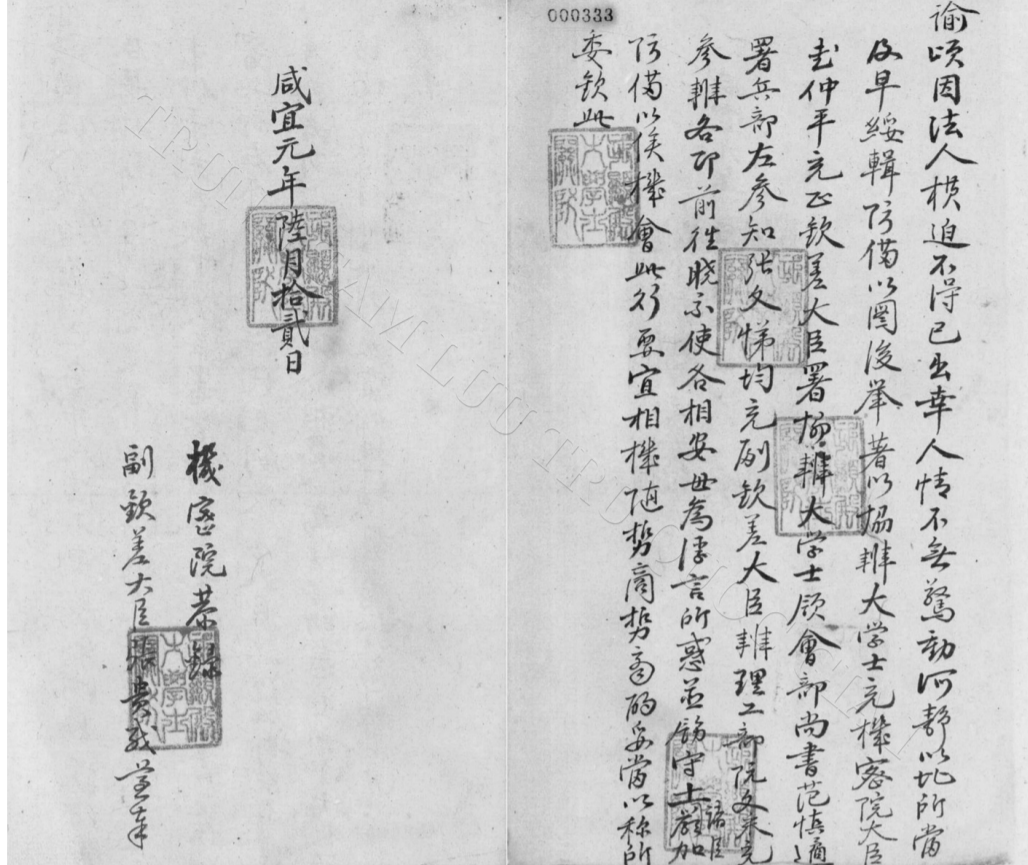 000333
諭頃因法人横迫不得已出幸人情不無驚動河靜以北所當
及早綏輯防備以圖後举著以協辦大学士充機密院大臣
仲平充正欽差大臣署協辦大学士領會部尚書范慎適
署兵部左參知張文悌均充副欽差大臣辦理工部院文
參辦各印前徃曉示使各相安毋為浮言所惑並飭守土諸臣加
防備以俟機會此行要宜相機随势商妥當以称所
委欽此
咸宜元年陸月拾貳日
機密院恭錄
副欽差大臣